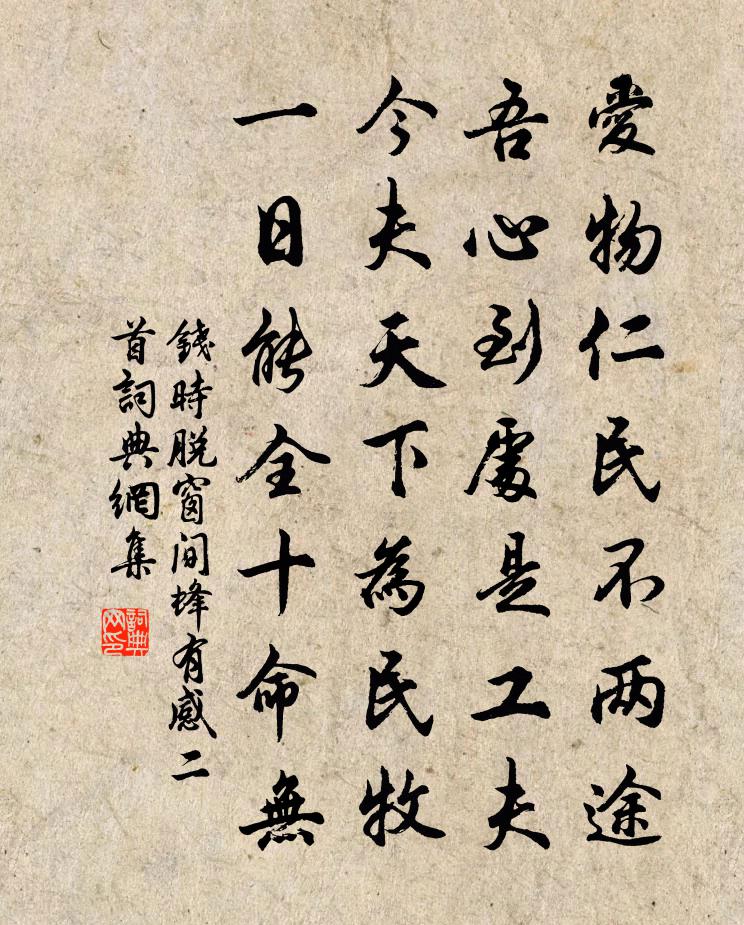 愛物仁民不两途
吾心到處是工夫
今夫天下為民牧
一日能全十命無
錢時脱窗间蜂有感二
首詞典網集
詞典网印